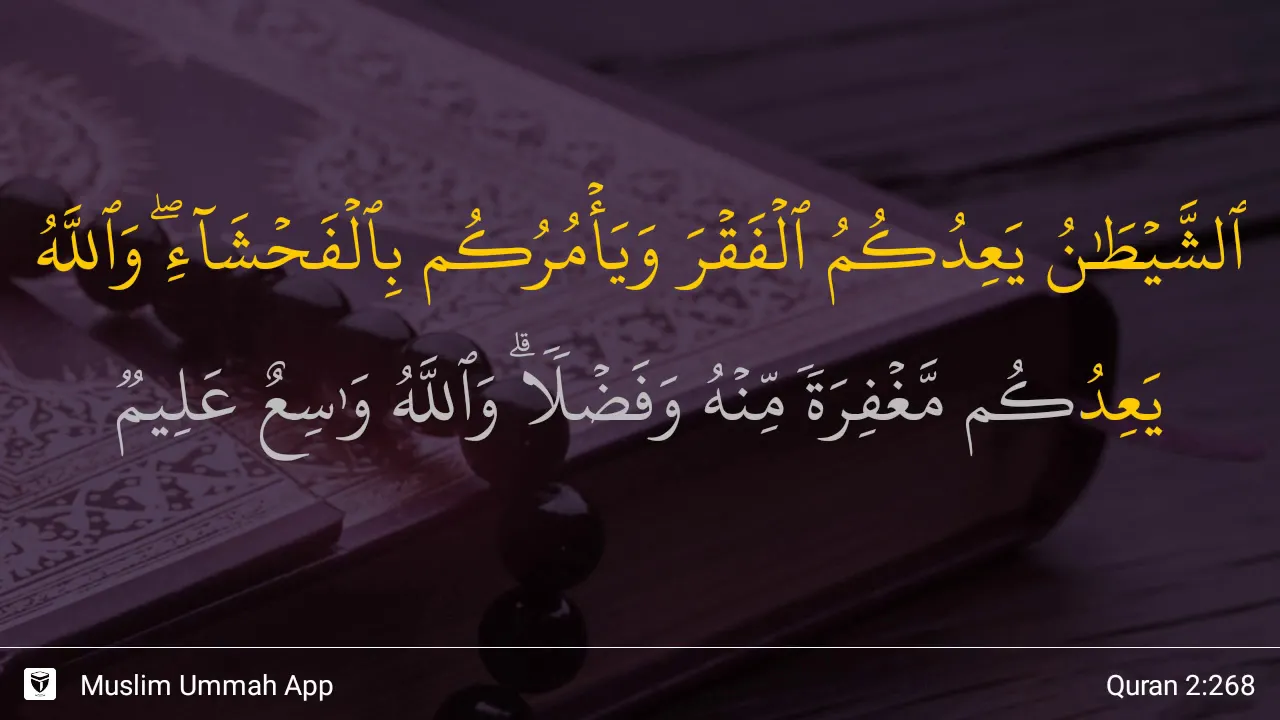 ٱلشَّيۡطَٰنُ يَعِدُكُمُ ٱلۡفَقۡرَ وَيَأۡمُرُكُم بِٱلۡفَحۡشَآءِۖ وَٱللَّهُ
يَعِدُكُم مَّغۡفِرَةٗ مِّنۡهُ وَفَضۡلٗاۗ وَٱللَّهُ وَٰسِعٌ عَلِيمٞ
Muslim Ummah App
Quran 2:268